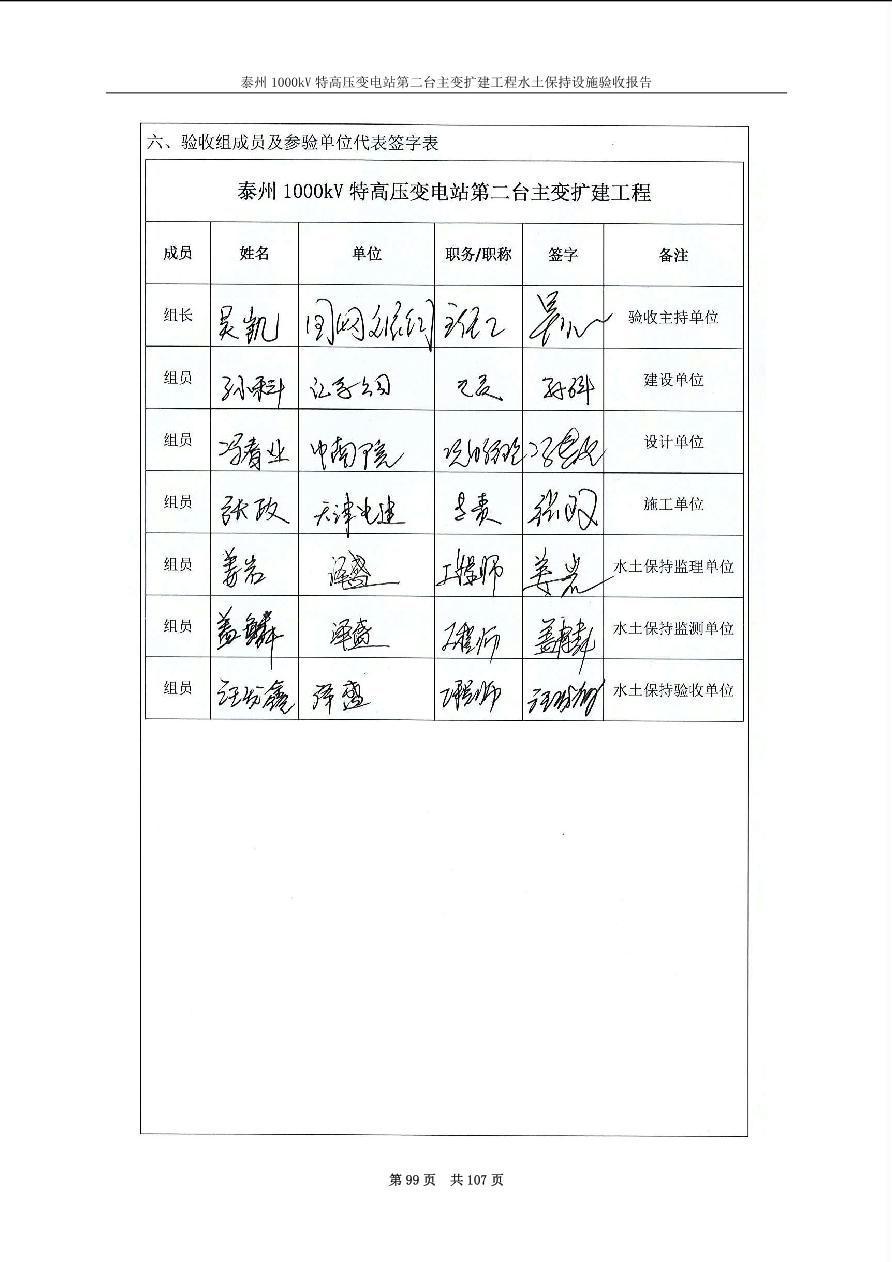 泰州 1000kV 特高压变电站第二台主变扩建工程水土保持设施验收报告
六、验收组成员及参验单位代表签字表
泰州 1000kV 特高压变电站第二台主变扩建工程
成员 姓名 单位 职务/职称 签字 备注
组长 吴凯 国网 吴 验收主持单位
组员 孙科 公司 孙科 建设单位
组员 冯春业 中南院 冯春业 设计单位
组员 张政 天津电建 专责 张政 施工单位
组员 姜岩 泽盛 工程师 姜岩 水土保持监理单位
组员 盖鳞 泽盛 工程师 盖 水土保持监测单位
组员 汪 鑫 泽盛 工程师 汪 水土保持验收单位
第 99 页 共 107 页